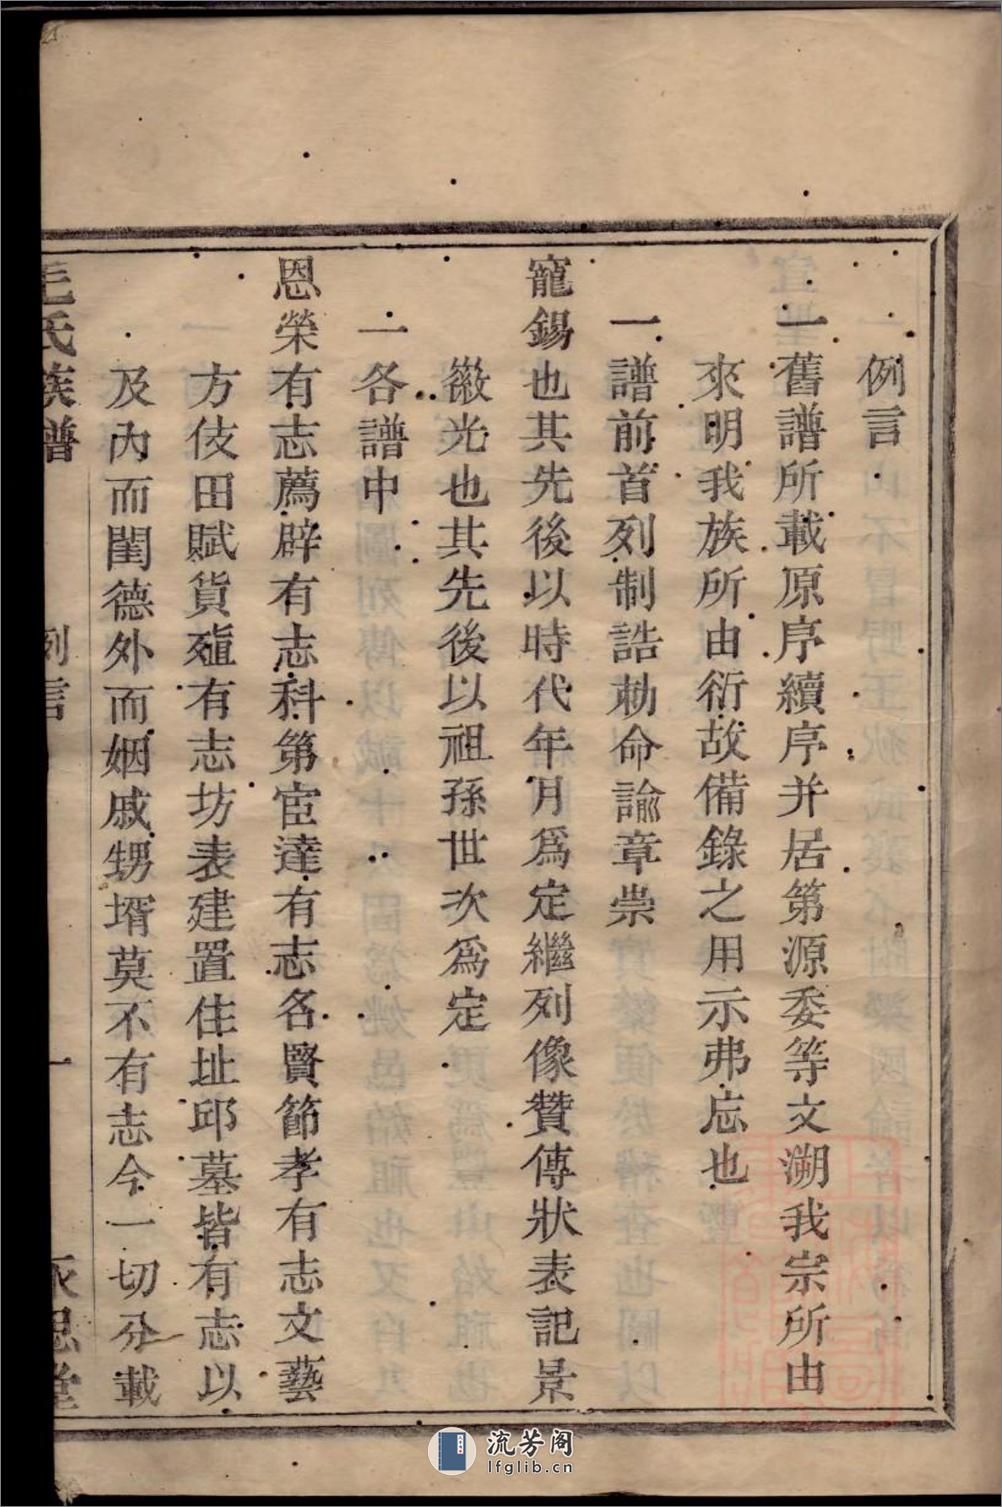 例言
一舊譜所載原序續序并居第源委等文溯我宗所由
來明我族所由衍故備錄之用示弗忘也
一譜前首列制誥勅命諭章崇
寵錫也其先後以時代年月爲定繼列像贊傳狀表記景
徽光也其先後以祖孫世次爲定
一各譜中
恩榮有志薦辟有志科第宦達有志名賢節孝有志文藝
方伎田賦貨殖有志坊表建置住址邱墓皆有志以
及內而閨德外而姻戚甥壻莫不有志今一切分載
毛氏族譜 例言 一 永思堂
流芳阁
lfglib.cn